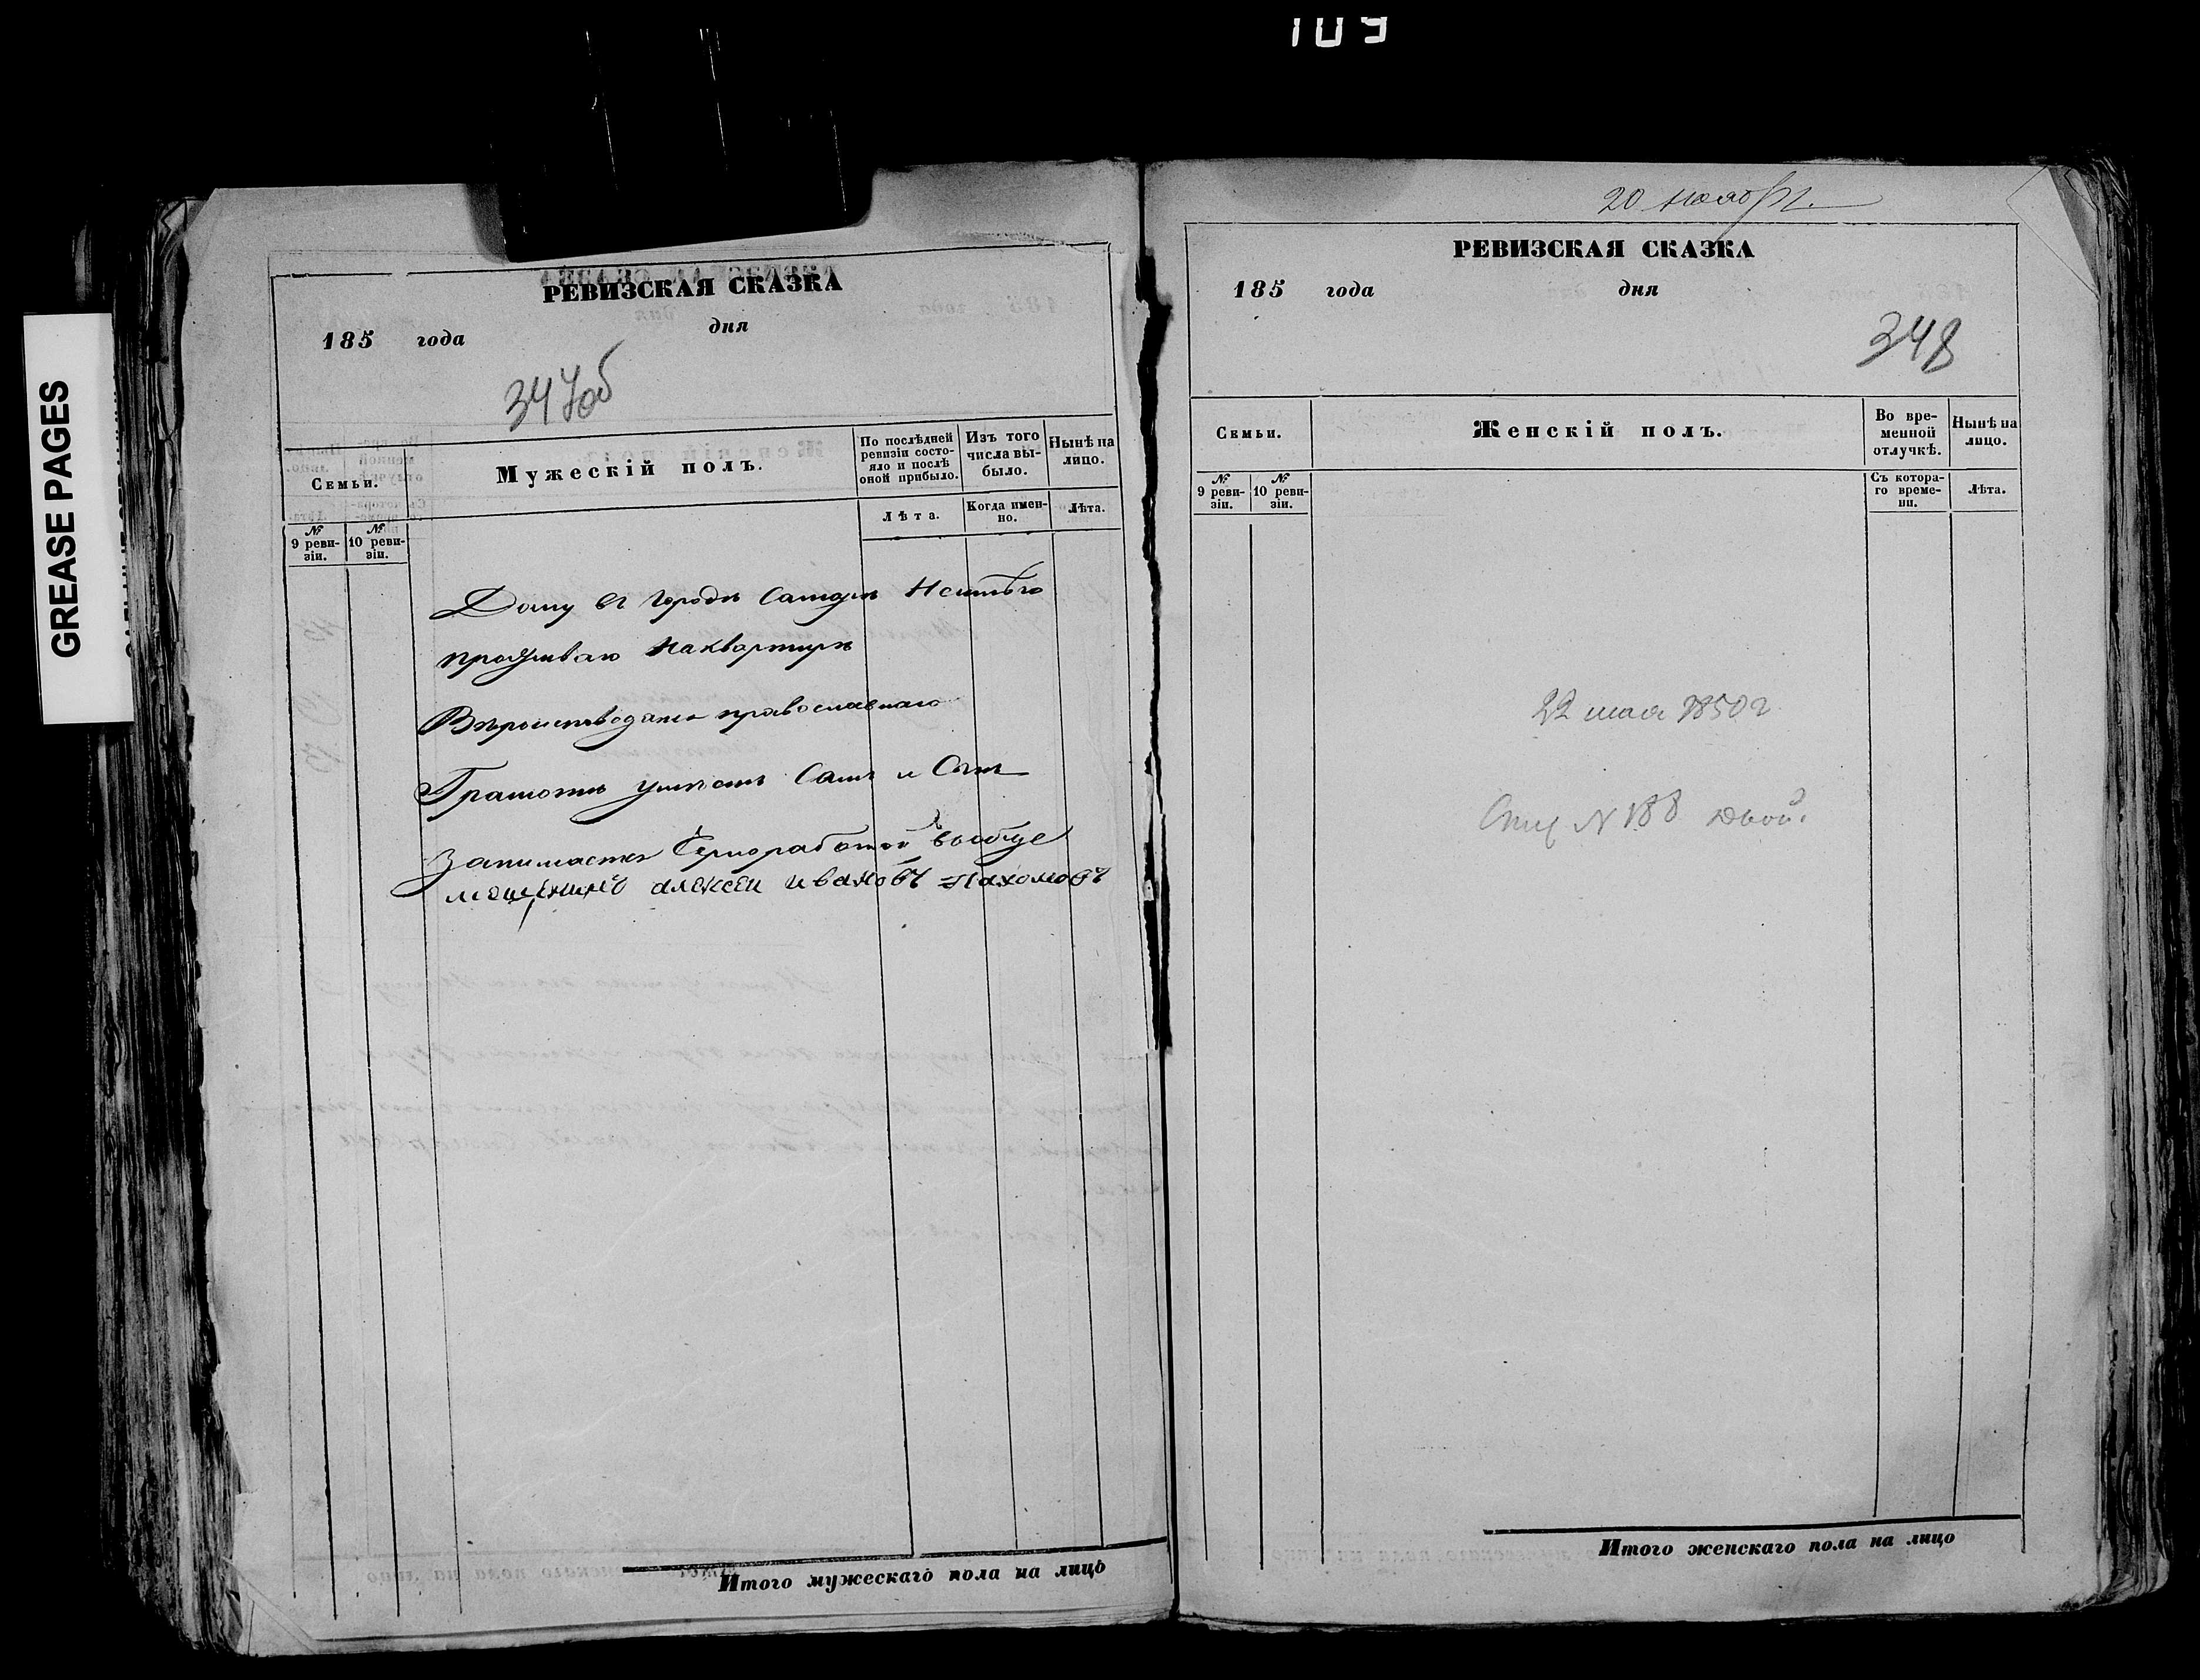 109
GREASE PAGES
РЕВИЗСКАЯ СКАЗКА
185 года дня
347об
Семьи.
Мужескій полъ.
По послѣдней ревизіи состояло и послѣ оной прибыло.
Изъ того числа выбыло.
Нынѣ на лицо.
№ 9 ревизіи.
№ 10 ревизіи.
Лѣта.
Когда именно.
Лѣта.
Дому въ городѣ Самарѣ Неимѣю
проживаю наквартирѣ
Вѣроисповеданія православнаго
Грамотѣ умѣетъ Самъ и Сынъ
Занимается Чернработой вообще
мещенинъ алексеи ивановъ пахомовъ
Итого мужескаго пола на лицо
20 Ноября.
РЕВИЗСКАЯ СКАЗКА
185 года дня
348
Семьи.
Женскій полъ.
Во временной отлучкѣ.
Нынѣ на лицо.
№ 9 ревизіи.
№ 10 ревизіи.
Съ котораго времени.
Лѣта.
22 мая 1850 г
N 188
Итого женскаго пола на лицо